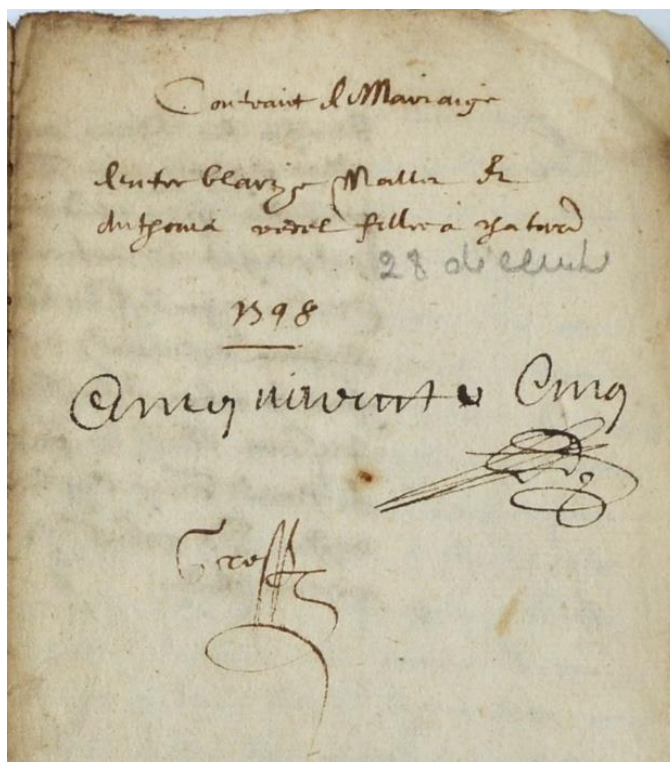 Contraict de Mariaige
d'entre blaize Mallet et
Anthonia vedel fille a
28 decemb
1598
Cinquante Cinq
Grosse